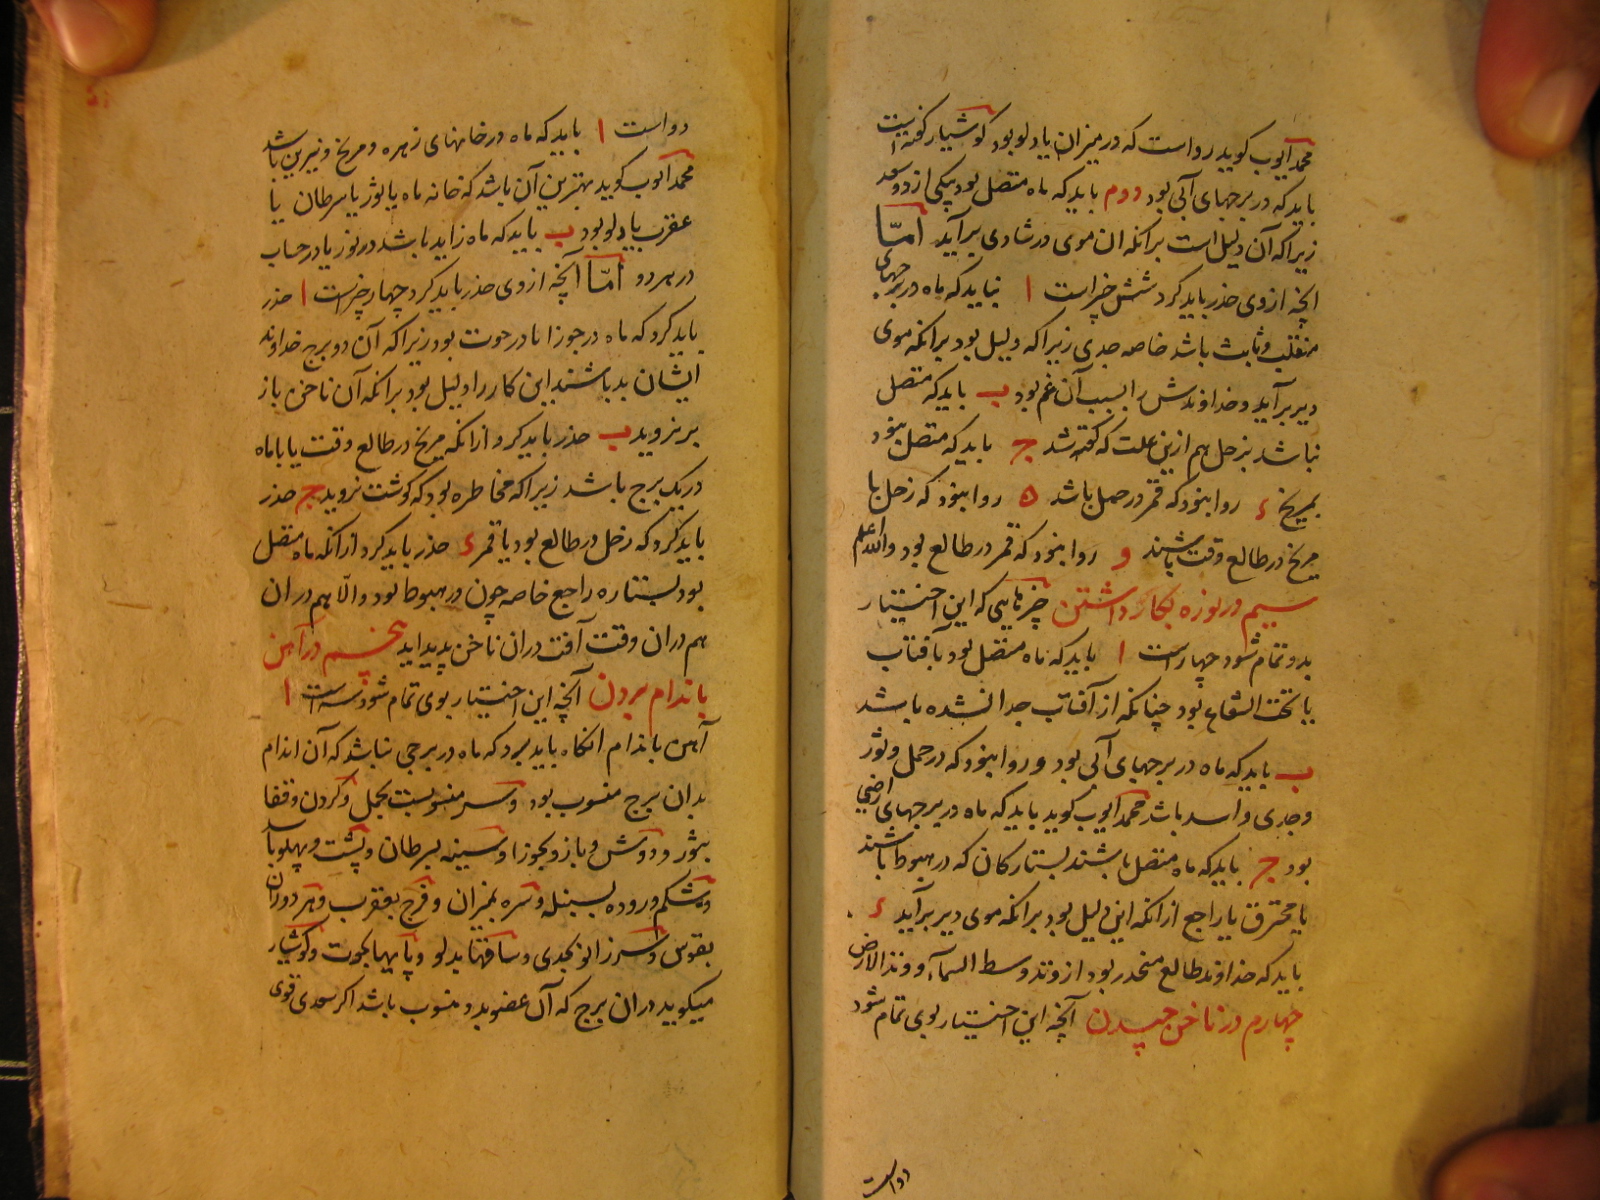 محمد ایوب کوید رواست که در میزان یا دلو بود کوشیار کفته است
باید که در برجهای آبی بود دوم باید که ماه متصل بود بیکی از دو سعد
زیرا که آن دلیل است برانکه ان موی در شادی برآید امّا
آنچه ازوی حذر باید کرد شش چیز است ا نباید که ماه در برجهای
منقلب و ثابت باشد خاصه جدی زیرا که دلیل بود برانکه موی
دیر برآید و خداوندش را بسبب آن غم بود ب باید که متصل
نباشد بزحل هم ازین علت که کفته شد ج باید که متصل نبود
بمریخ ء روا نبود که قمر در حمل باشد ه روا نبود که زحل یا
مریخ در طالع وقت باشند و روا نبود که قمر در طالع بود والله اعلم
سیم در نوره بکار داشتن چیزهایی که این اختیار
بدو تمام شود چهار است ا باید که ماه متصل بود بآفتاب
یا تحت الشعاع بود چنانکه از آفتاب جدا نشده باشد
ب باید که ماه در برجهای آبی بود و روا نبود که در حمل و ثور
و جدی و اسد باشد محمد ایوب کوید باید که ماه در برجهای ارضی
بود ج باید که ماه متصل باشند بستارکان که در هبوط باشند
یا محترق یا راجع ازانکه این دلیل بود برانکه موی دیر برآید ء
باید که خداوند طالع منحدر بود از وتد وسط السمآء و وتد الارض
چهارم در ناخن چیدن آنچه این اختیار بوی تمام شود
دواست
دواست ا باید که ماه در خانهای زهره و مریخ و نیرین باشد
محمد ایوب کوید بهترین آن باشد که خانه ماه یا ثور یا سرطان یا
عقرب یا دلو بود ب باید که ماه زاید باشد در نور یا در حساب
در هر دو امّا آنچه ازوی حذر باید کرد چهار چیز است ا حذر
باید کرد که ماه در جوزا یا در حوت بود زیرا که آن دو برج خداوند
ایشان بد باشند این کار را و لیل بود برانکه آن ناخن باز
بر نروید ب حذر باید کرد ازانکه مریخ در طالع وقت یا با ماه
در یک برج باشد زیرا که مخاطره بود که کوشت نروید ج حذر
باید کرد که زحل در طالع بود یا قمر ء حذر باید کرد ازانکه ماه متصل
بود بستاره راجع خاصه چون در هبوط بود والّا هم در ان
هم دران وقت آفت دران ناخن پدید اید پنجم در آهن
باندام بردن آنچه این اختیار بوی تمام شود سه است ا
آهن باندام انکاه باید برد که ماه در برجی نباشد که آن اندام
بدان برج منسوب بود و سر منسوبست بحمل و کردن و قفا
بثور و دوش و بازو بجوزا و سینه بسرطان و پشت و پهلو باسد
و شکم و روده بسنبله و سره بمیزان و فرج بعقرب و هر دو ران
بقوس و سر زانو بجدی و ساقها بدلو و پایها بحوت و کوشیار
میکوید دران برج که آن عضو بدو منسوب باشد اکر سعدی قوی